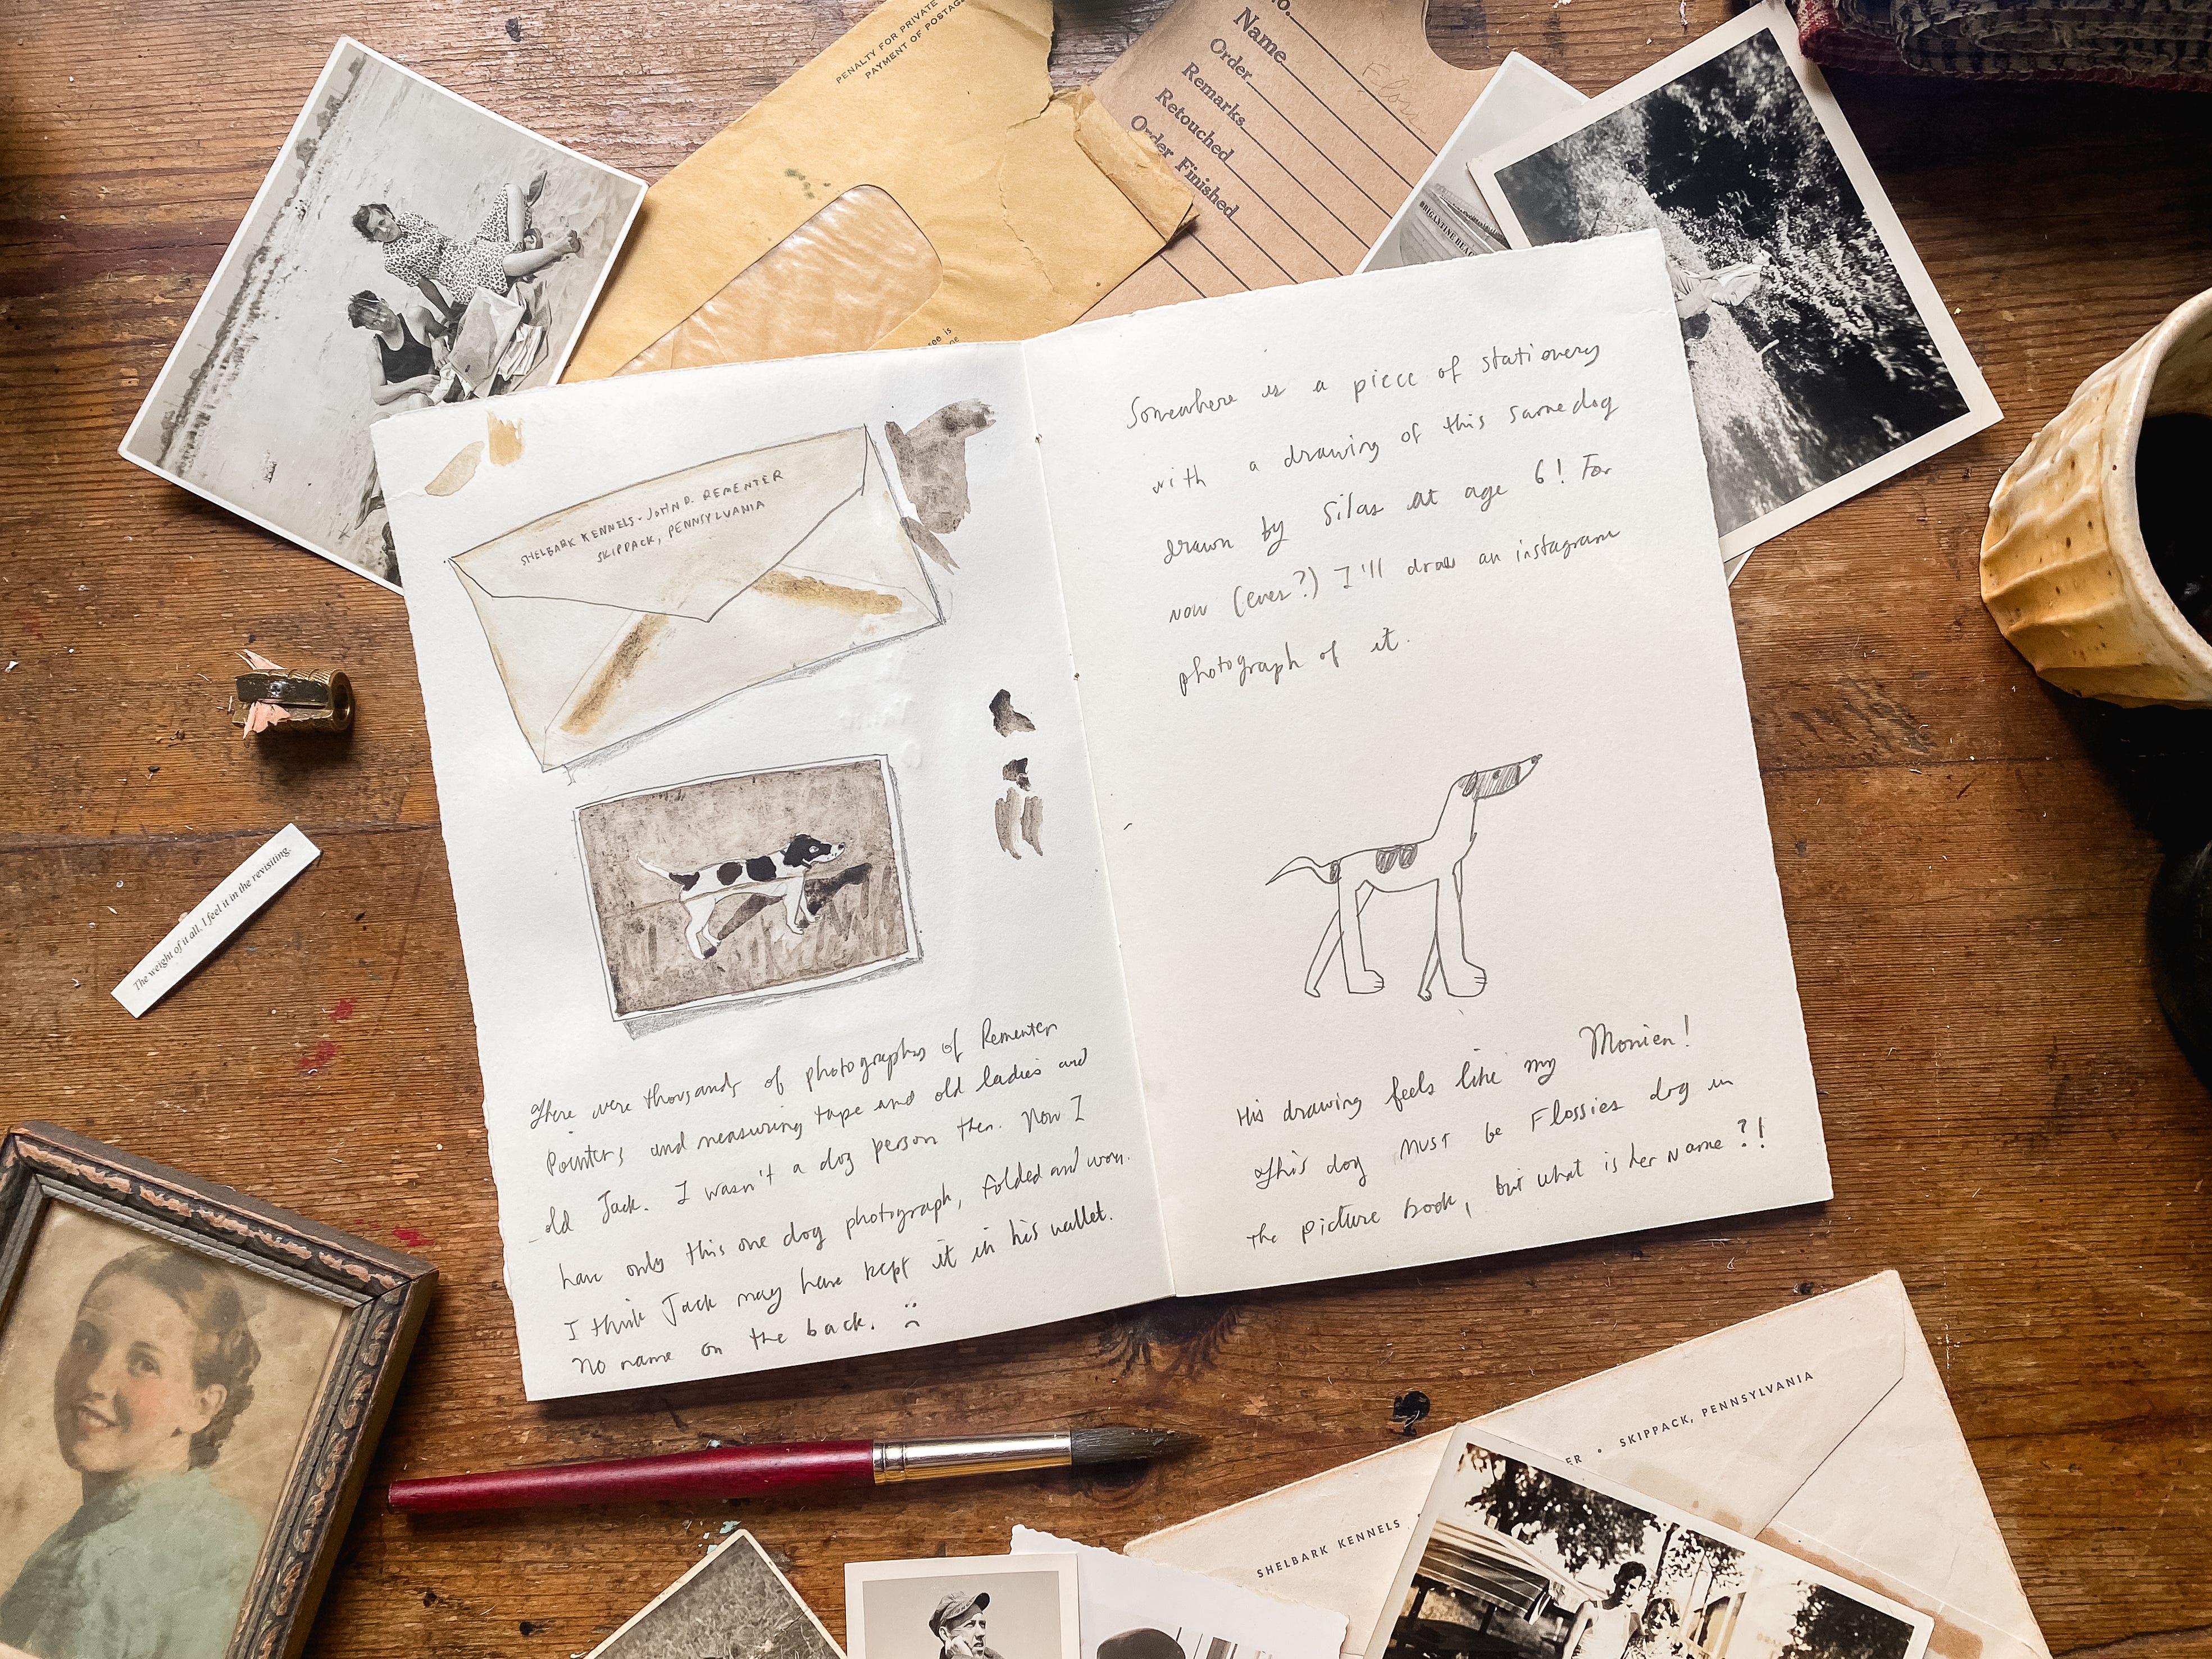 PENALTY FOR PRIVATE
PAYMENT OF POSTAGE
Name
Order
Remarks
Retouched
Order Finished
BRIGANTINE BEA
SHELBARK KENNELS - JOHN D. REMENTER
SKIPPACK, PENNSYLVANIA
There were thousands of photographs of Rementer
Pointers and measuring tape and old ladies and
old Jack. I wasn't a dog person then. Now I
have only this one dog photograph, folded and worn.
I think Jack may have kept it in his wallet.
No name on the back. :(
Somewhere is a piece of stationery
with a drawing of this same dog
drawn by Silas at age 6! For
now (ever?) I'll draw an instagram
photograph of it.
His drawing feels like my Monien!
This dog MUST be Flossies dog in
the picture book, but what is her name?!
The weight of it all. I feel it in the revisiting.
SHELBARK KENNELS • ER • SKIPPACK, PENNSYLVANIA